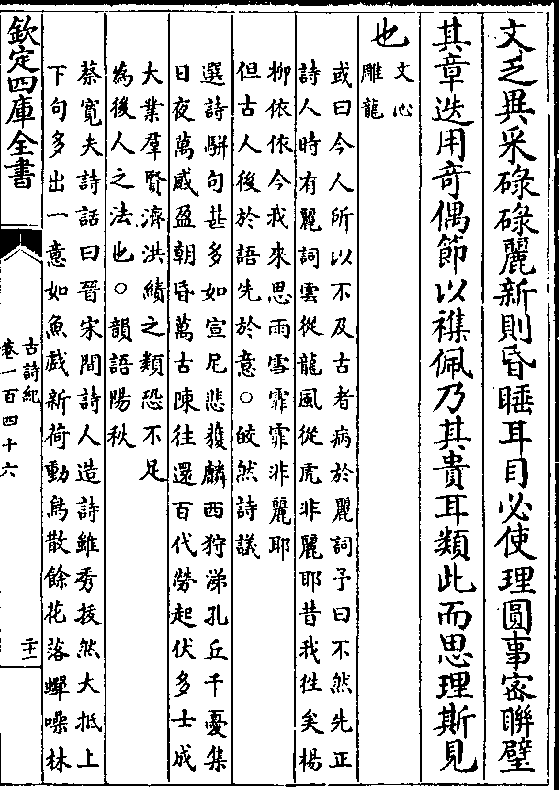 文乏異采碌碌麗新則昏睡耳目必使理圓事宻聨璧
其章迭用竒偶節以襍佩乃其貴耳類此而思理斯見
也文心
雕龍
或曰今人所以不及古者病於麗詞予曰不然先正
詩人時有麗詞雲從龍風從虎非麗耶昔我徃矣楊
柳依依今我來思雨雪霏霏非麗耶
但古人後於語先於意○皎然詩議
選詩駢句甚多如宣尼悲獲麟西狩涕孔丘千憂集
日夜萬感盈朝昏萬古陳往還百代勞起伏多士成
大業羣賢濟洪績之類恐不足
為後人之法也○韻語陽秋
蔡寛夫詩話曰晉宋間詩人造詩雖秀拔然大抵上
下句多出一意如魚戲新荷動鳥散餘花落蟬噪林
欽定四庫全書
古詩紀
卷一百四十六
二十二